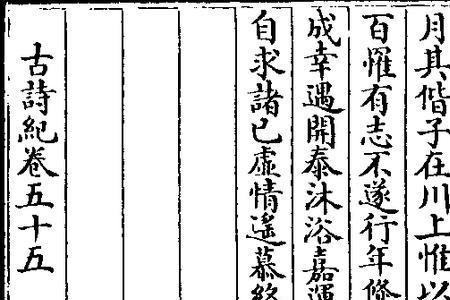 月其偕子在川上惟以
百懼有志不遂行年倏
成幸遇開泰沐浴嘉運
自求諸已虛情遙慕終
古詩紀卷五十五